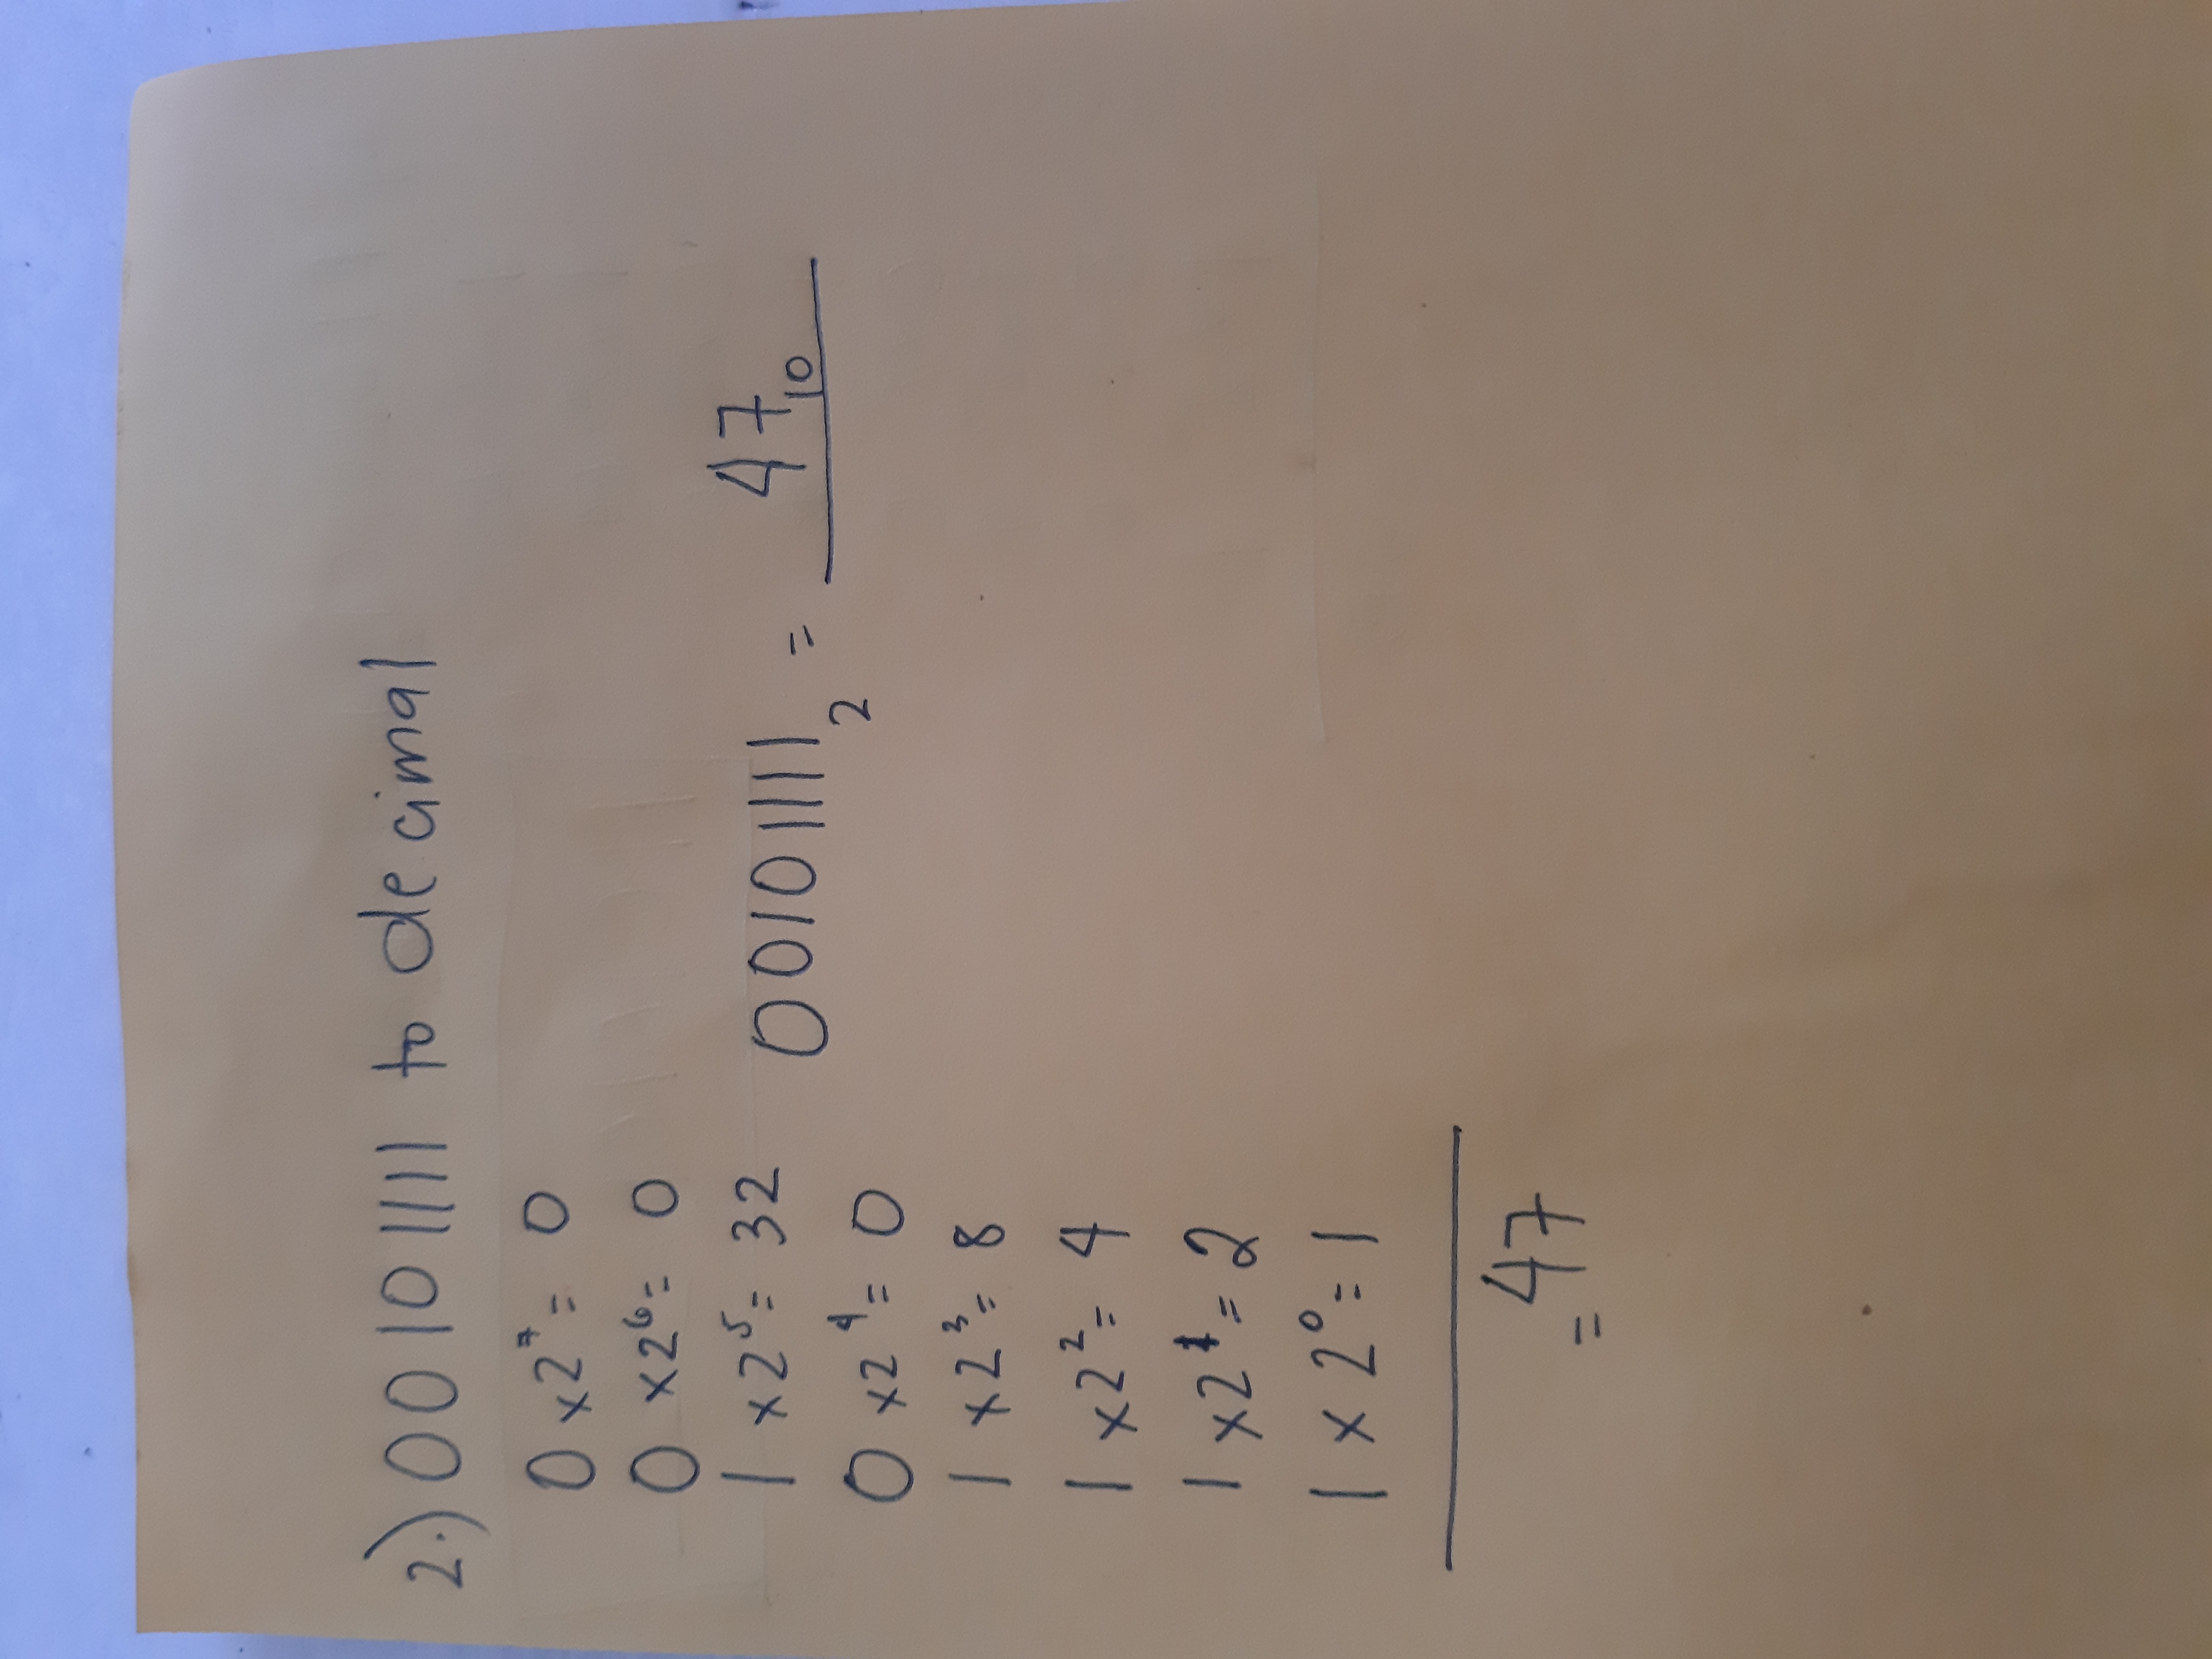 2.) 00101111 to decimal
0 x 2⁷ = 0
0 x 2⁶ = 0
1 x 2⁵ = 32
0 x 2⁴ = 0
1 x 2³ = 8
1 x 2² = 4
1 x 2¹ = 2
1 x 2⁰ = 1
= 47
00101111₂ = 47₁₀